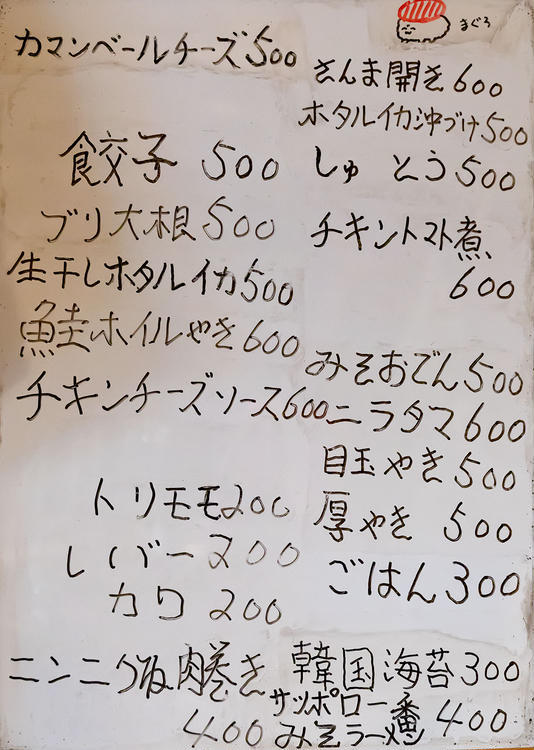 まぐろ
カマンベールチーズ500
餃子 500
ブリ大根500
生干しホタルイカ500
鮭ホイルやき600
チキンチーズソース600
トリモモ200
レバー200
カワ 200
ニンニク 肉巻き
400
さんま開き600
ホタルイカ沖づけ500
しゅとう500
チキントマト煮
600
みそおでん500
ニラタマ600
目玉やき500
厚やき 500
ごはん300
韓国海苔300
サッポロ一番
みそラーメン 400